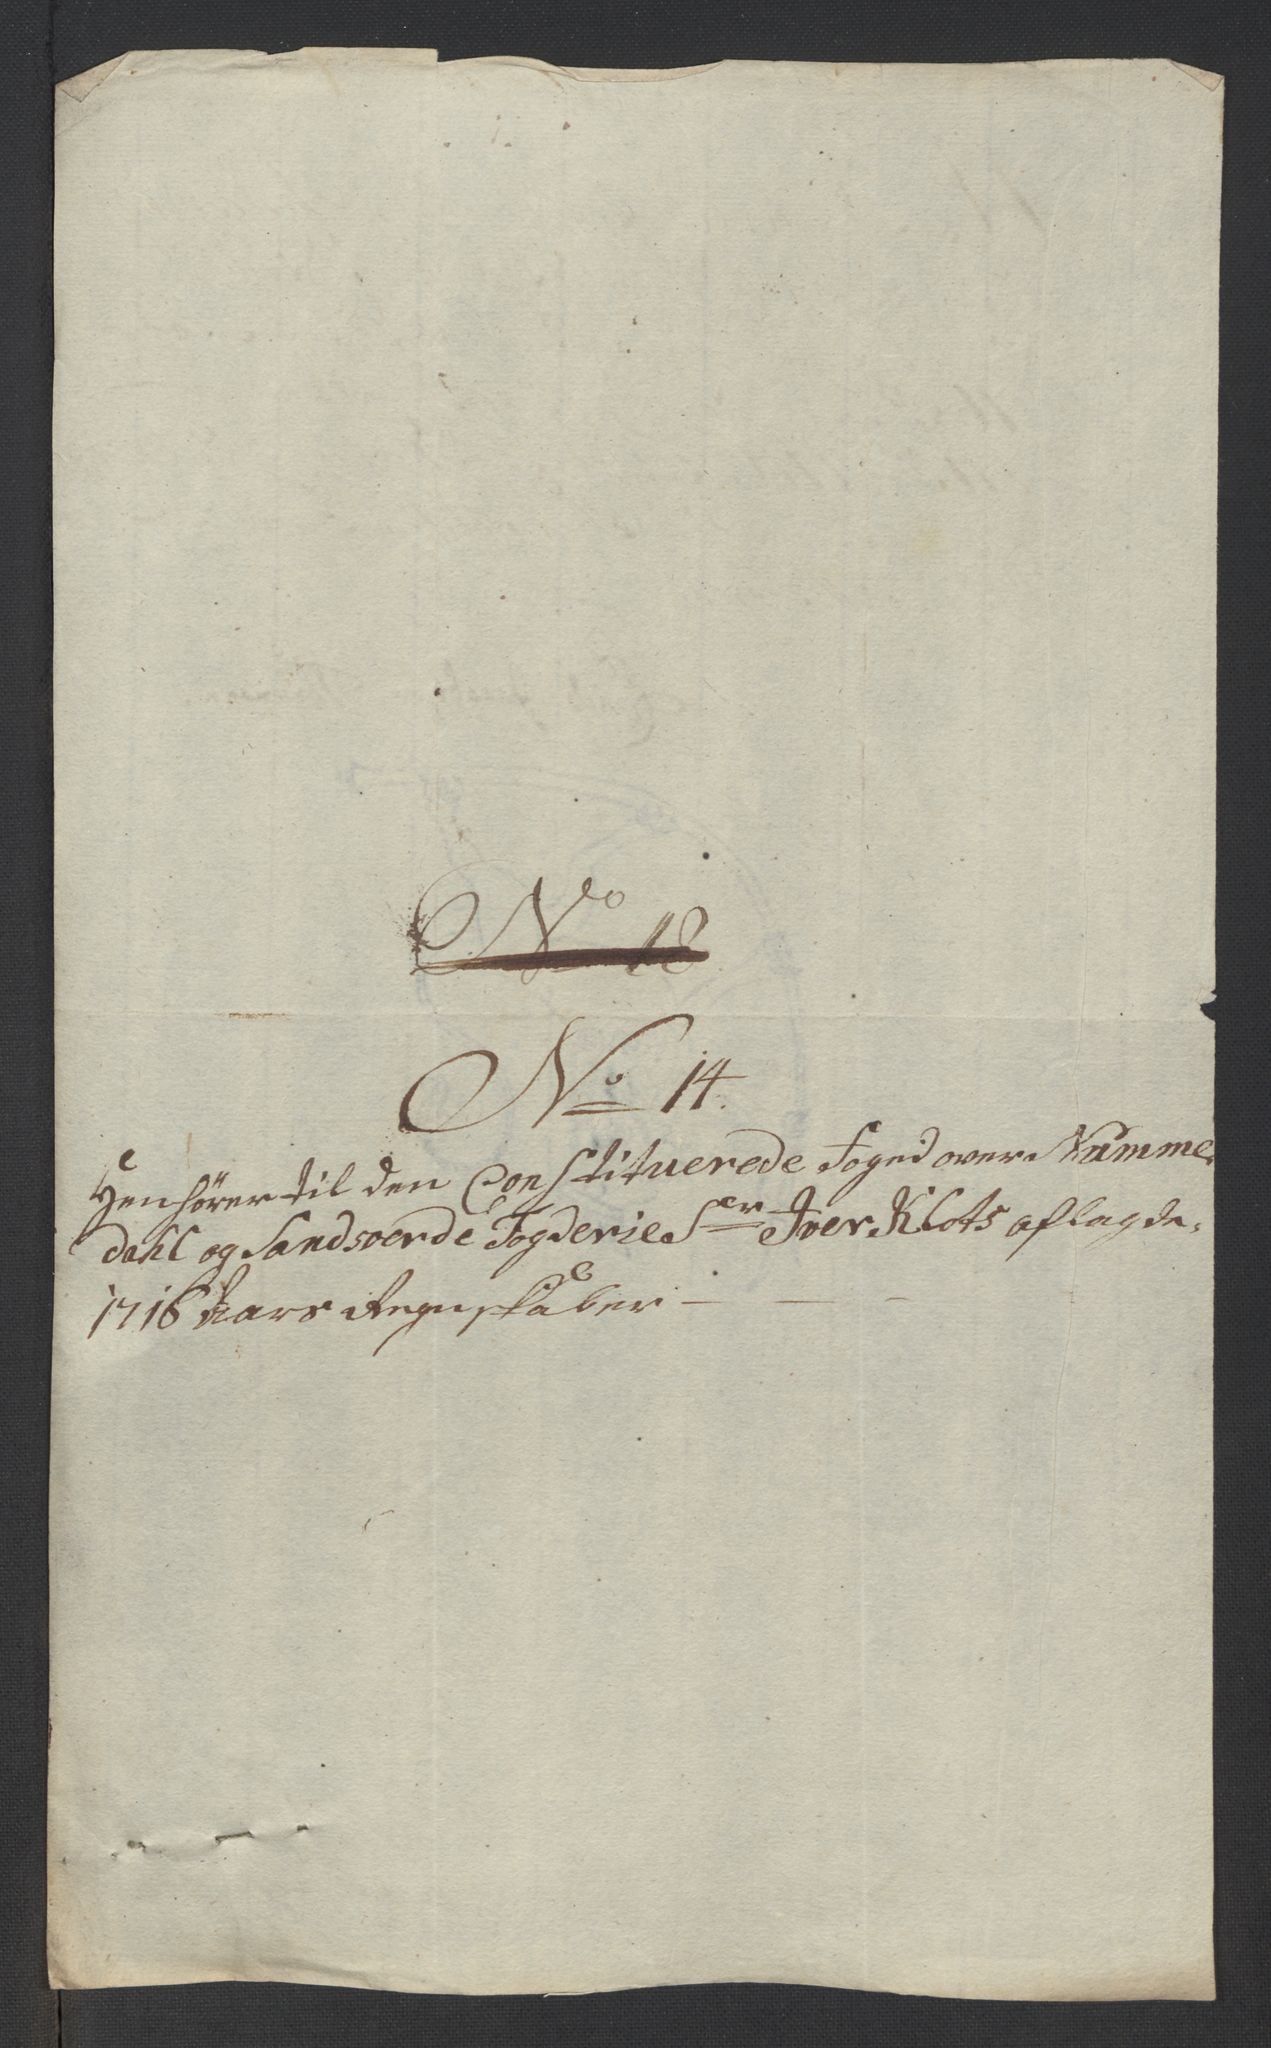 No 18
No 14.
Henhörer til den Constituerede Foged over Numme
dahl og Sandsverde Fogderie Ser Iver Klots aflagde
1716 Aars Regnskaber — — —